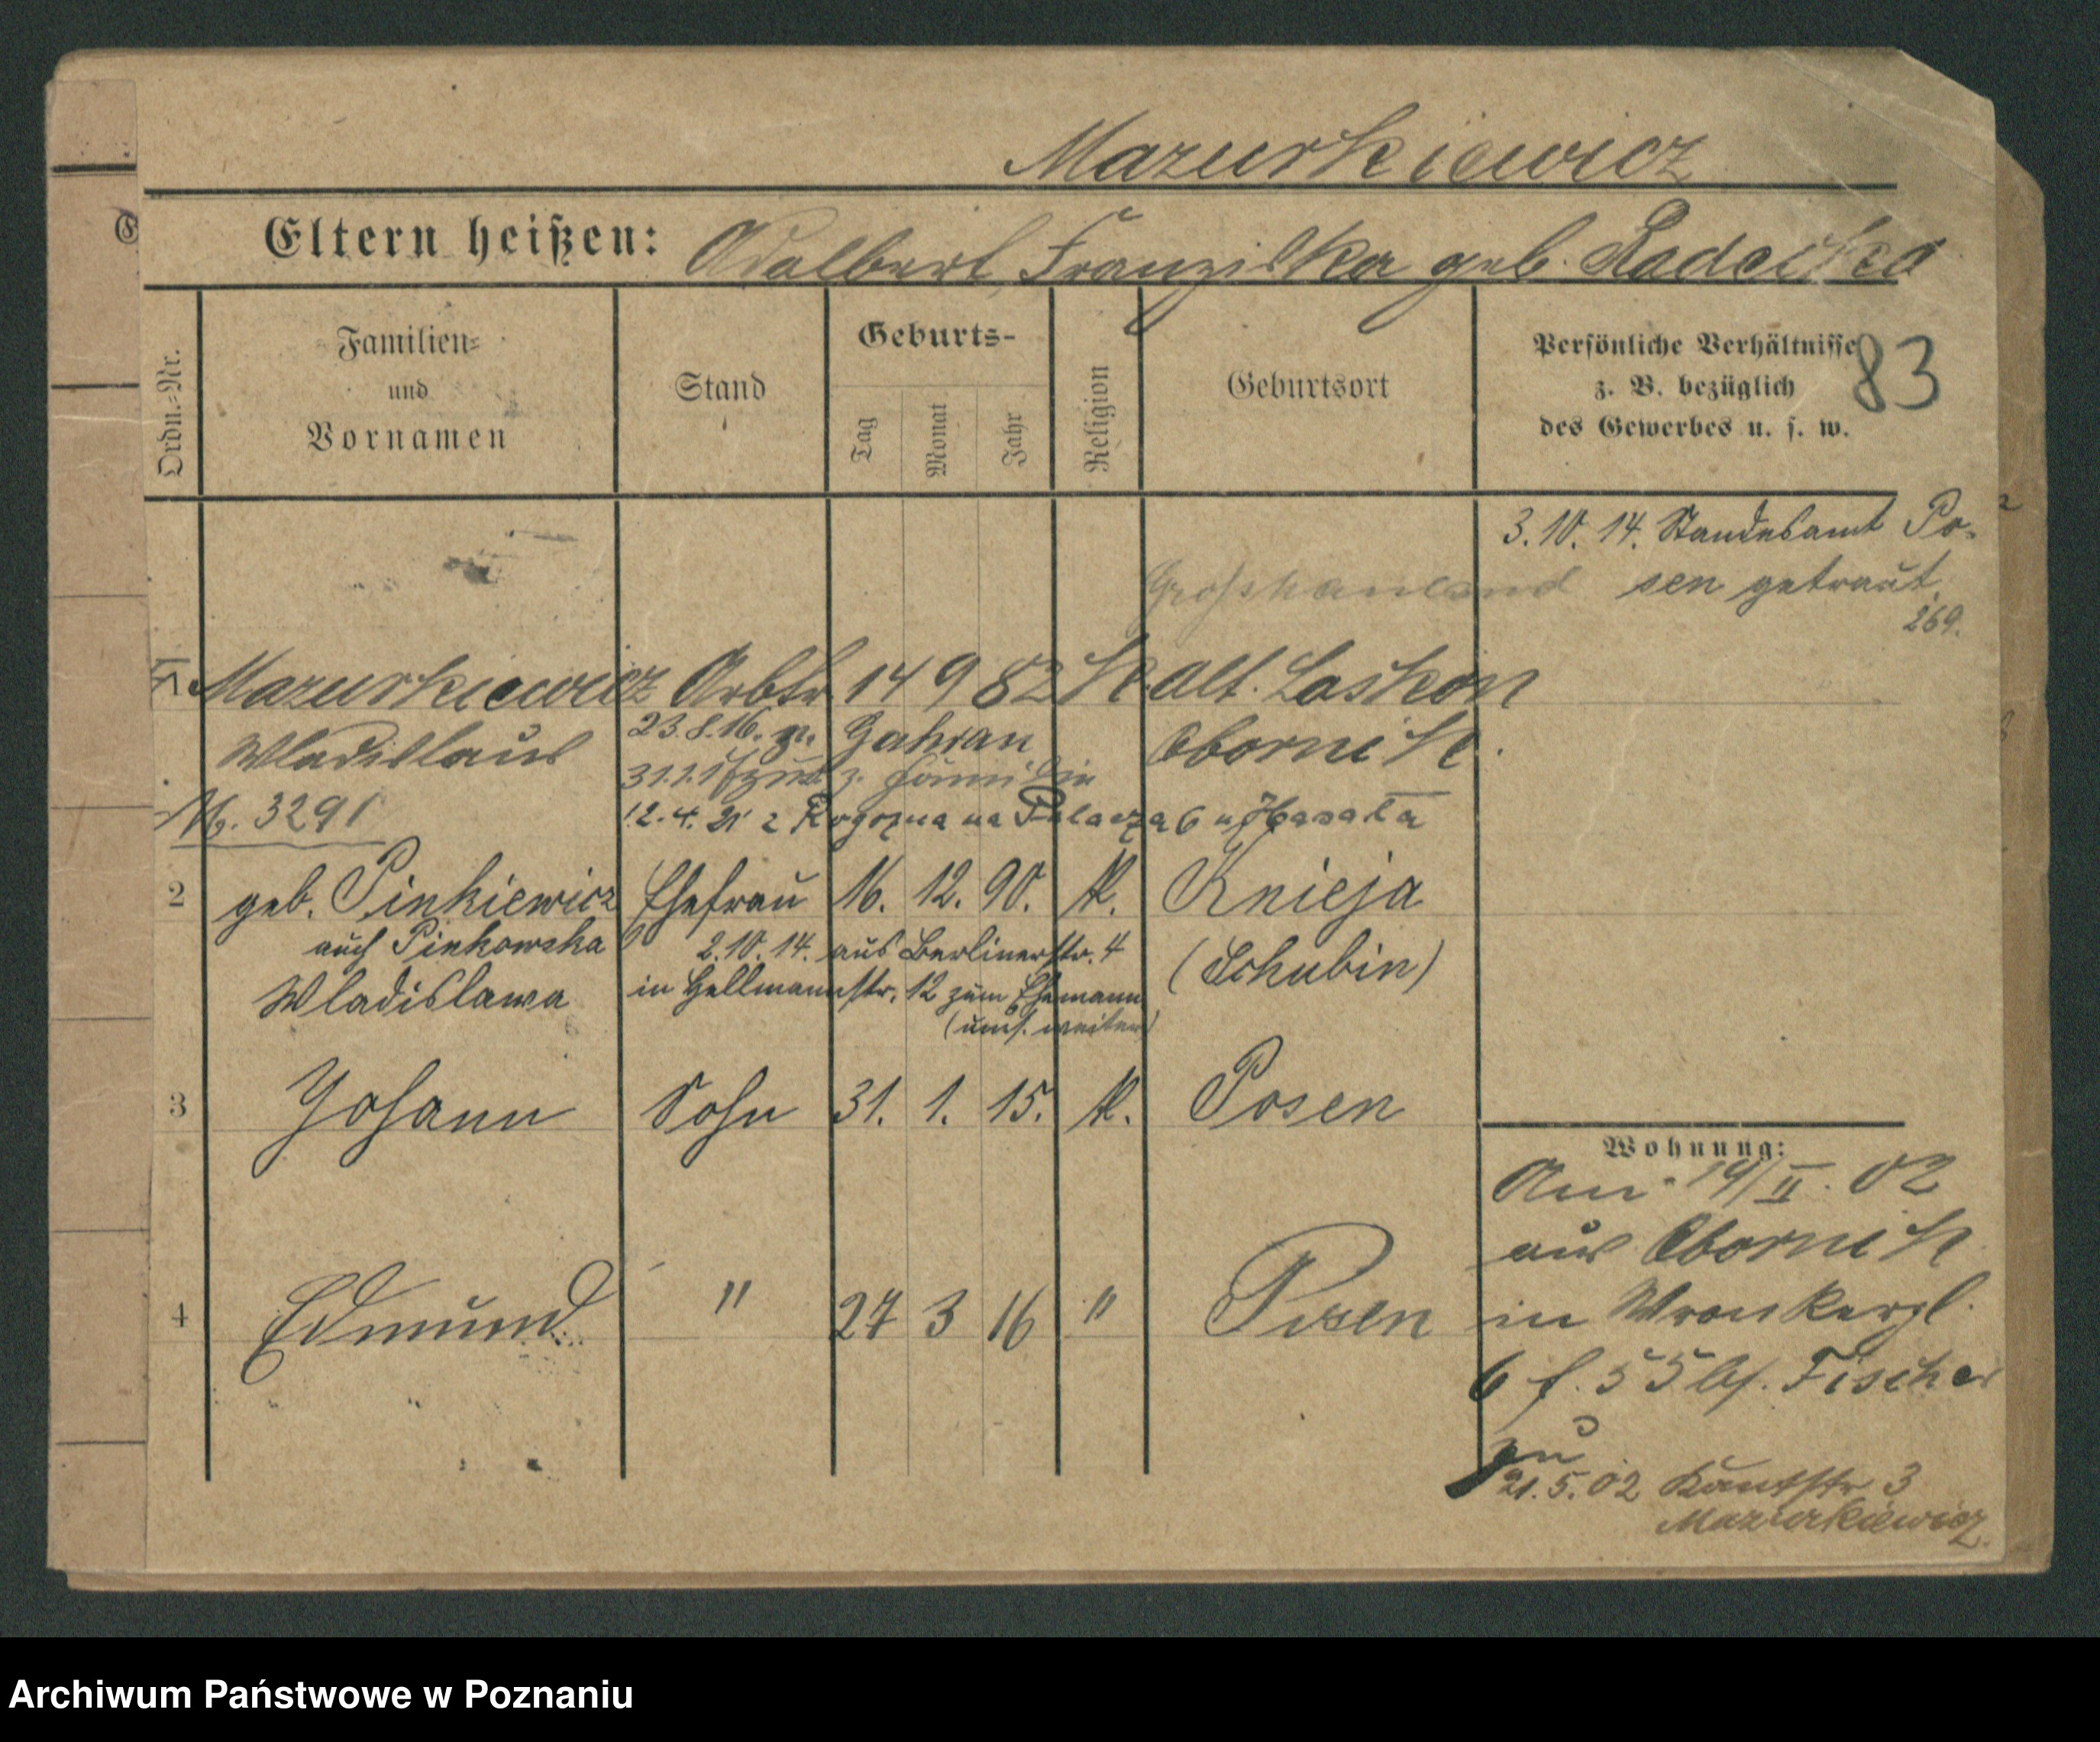 Mazurkiewicz
Eltern heißen: Adalbert, Franziska geb. Radecka
Ordn.=Nr.
Familien=
und
Vornamen
Stand
Geburts-
Tag
Monat
Jahr
Religion
Geburtsort
Persönliche Verhältnisse
z. B. bezüglich
des Gewerbes u. s. w.
83
3. 10. 14. Standesamt Po-
sen getraut.
269.
1 Mazurkiewicz Arbtr 14 9 82 K. Alt. Laskon
Wladislaus
23.8.16. n.
Obornik.
31.1.17
N. 3291
12. 4. 21 z Rogozna na Palacza 6 u
2 geb. Pinkiewicz Ehefrau 16. 12. 90. K. Knieja
auch Pinkowska
2. 10. 14. aus Berlinerstr. 4
(Schubin)
Wladislawa
in Hellmannstr. 12 zum Ehemann
(ums. weiter)
3 Johann Sohn 31. 1. 15. K. Posen
4 Edmund " 27 3 16 " Posen
Wohnung:
Am 14/II. 02
aus Obornik
in Wronkergl.
6 f. 55 bf. Fischer
zu
21.5.02 Kantstr 3
Mazurkiewicz
Archiwum Państwowe w Poznaniu